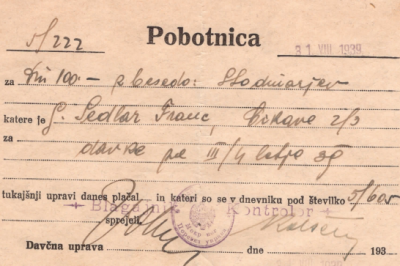 5/222
Pobotnica
31. VIII. 1939
za Din 100.- z besedo: Stodinarjev
katere je g. Sedlar Franc,
za davke za III/4 letje 39
tukajšnji upravi danes plačal, in kateri so se v dnevniku pod številko 5/605
Blagajnik Kontrolor
sprejeli.
Davčna uprava dne 193